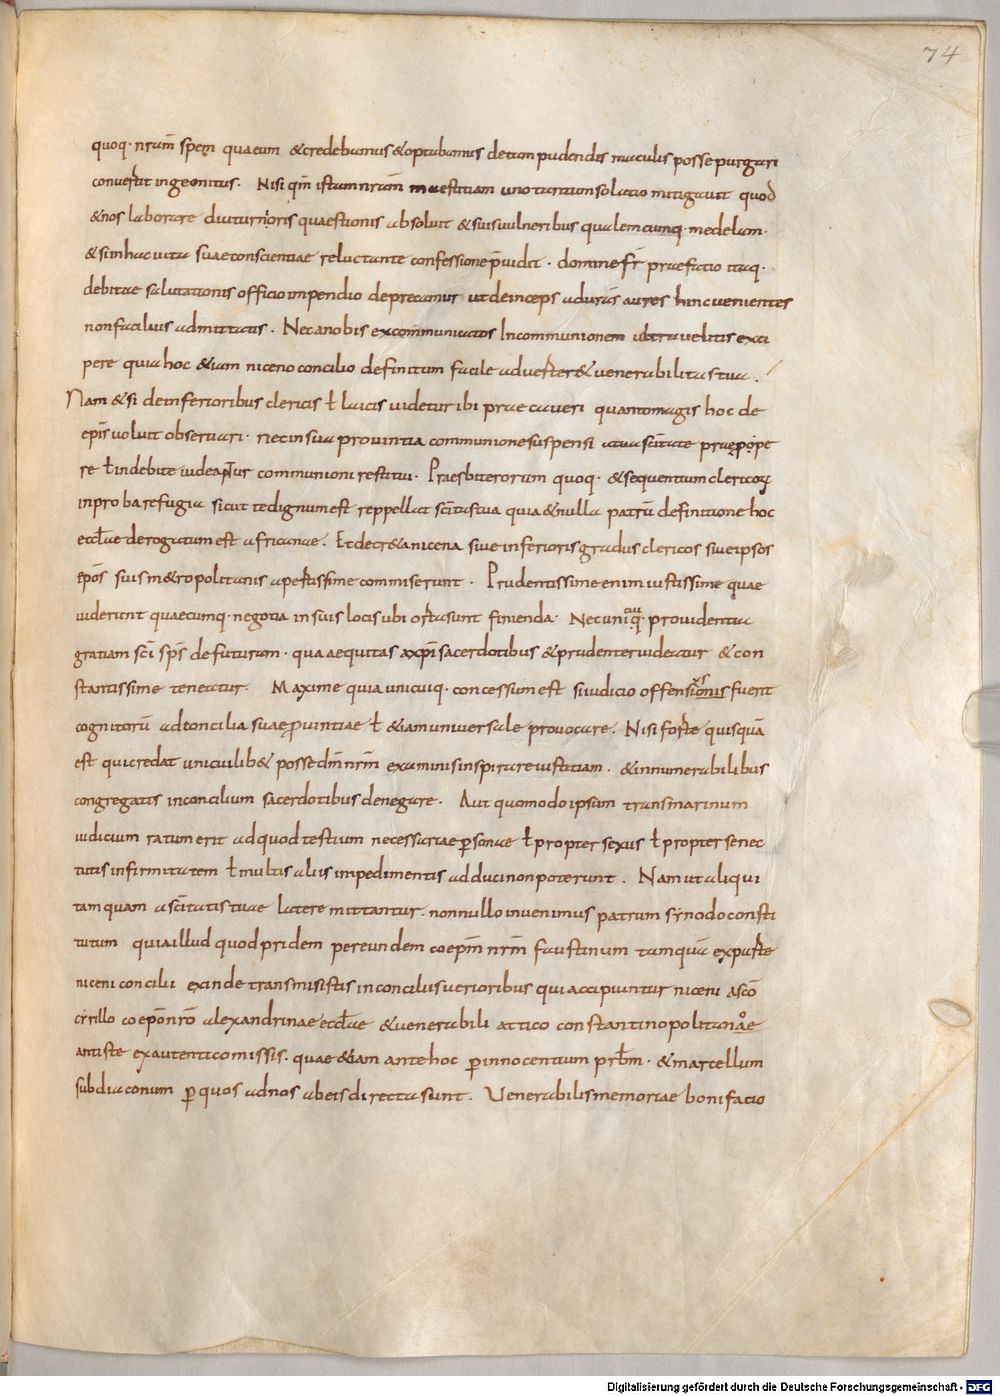 74
quoq· nr̄am̄ spem quaeum &credebamus &optabamus detam pudendis maculis posse purgari
convertit ingemitus. Nisi qm̄ istam nr̄am̄ maestitiam uno tantum solatio mitigavit quod
&nos laborare diuturnioris quaestionis absoluit &suis uulneribus qualemcumq· medelam·
&si inhac uita suae conscientiae reluctante confessione p̄uidit. domine fr̄ praefatio itaq·
debitae salutationis officio impendio deprecamur ut deinceps aduras aures hinc uenientes
nonfacilius admittatis. Nec anobis excommunicatos In communionem ultra uelitis exci
pere quia hoc &iam niceno concilio definitum facile aduerter& uenerabilitas tua.
Nam &si de inferioribus clericis ł laicis uidetur ibi prae caueri quantomagis hoc de
epīs uoluit obseruari· nec in sua prouintia communione suspensi atua sc̄itate praepope
re ł indebite uideantur communioni restitui. Praesbiterorum quoq· &sequentium clericorꝝ
inproba refugia sicut te dignum est reppellat sc̄itas tua quia &nulla patrū definitione hoc
eccl̄ae derogatum est africanae. Et decr&a nicena siue inferioris gradus clericos siue ipsos
ep̄os suis m&ropolitanis apertissime commiserunt. Prudentissime enim iustissime quae
uiderunt quaecumq· negotia in suis locis ubi orta sunt finienda. Nec unicuiq· prouidentia
gratiam sc̄i sp̄s defuturam· qua aequitas axp̄i sacerdotibus &prudenter uideatur &con
stantissime teneatur. Maxime quia unicuiq· concessum est si iudicio offensus fuerit
cognitorū ad concilia suae ꝓuintiae ł &iam uniuersale prouocare. Nisi forte quisquā
est qui credat unicuilib& posse dm̄ nr̄m̄ examinis inspirare iustitiam. &innumerabilibus
congregatis inconcilium sacerdotibus denegare. Aut quomodo ipsum transmarinum
iudicium ratum erit ad quod testium necessariae ꝑsonae ł propter sexus ł propter senec
tutis infirmitatem ł multis aliis impedimentis adduci non poterunt. Nam ut aliqui
tamquam a sc̄itatis tuae latere mittantur. nonnullo inuenimus patrum synodo consti
tutum quia illud quod pridem per eundem coepm̄ nr̄m̄ faustinum tamquā ex parte
niceni concilii exinde transmisistis in conciliis uerioribus qui accipiuntur niceni asc̄o
cyrillo coep̄o nr̄o alexandrinae eccl̄ae &uenerabili attico constantinopolitano
antiste ex autentico missis. quae &iam ante hoc ꝑinnocentium prb̄m· &marcellum
subdiaconum ꝑ quos adnos abeis directa sunt. Uenerabilis memoriae bonifacio
Digitalisierung gefördert durch die Deutsche Forschungsgemeinschaft - DFG